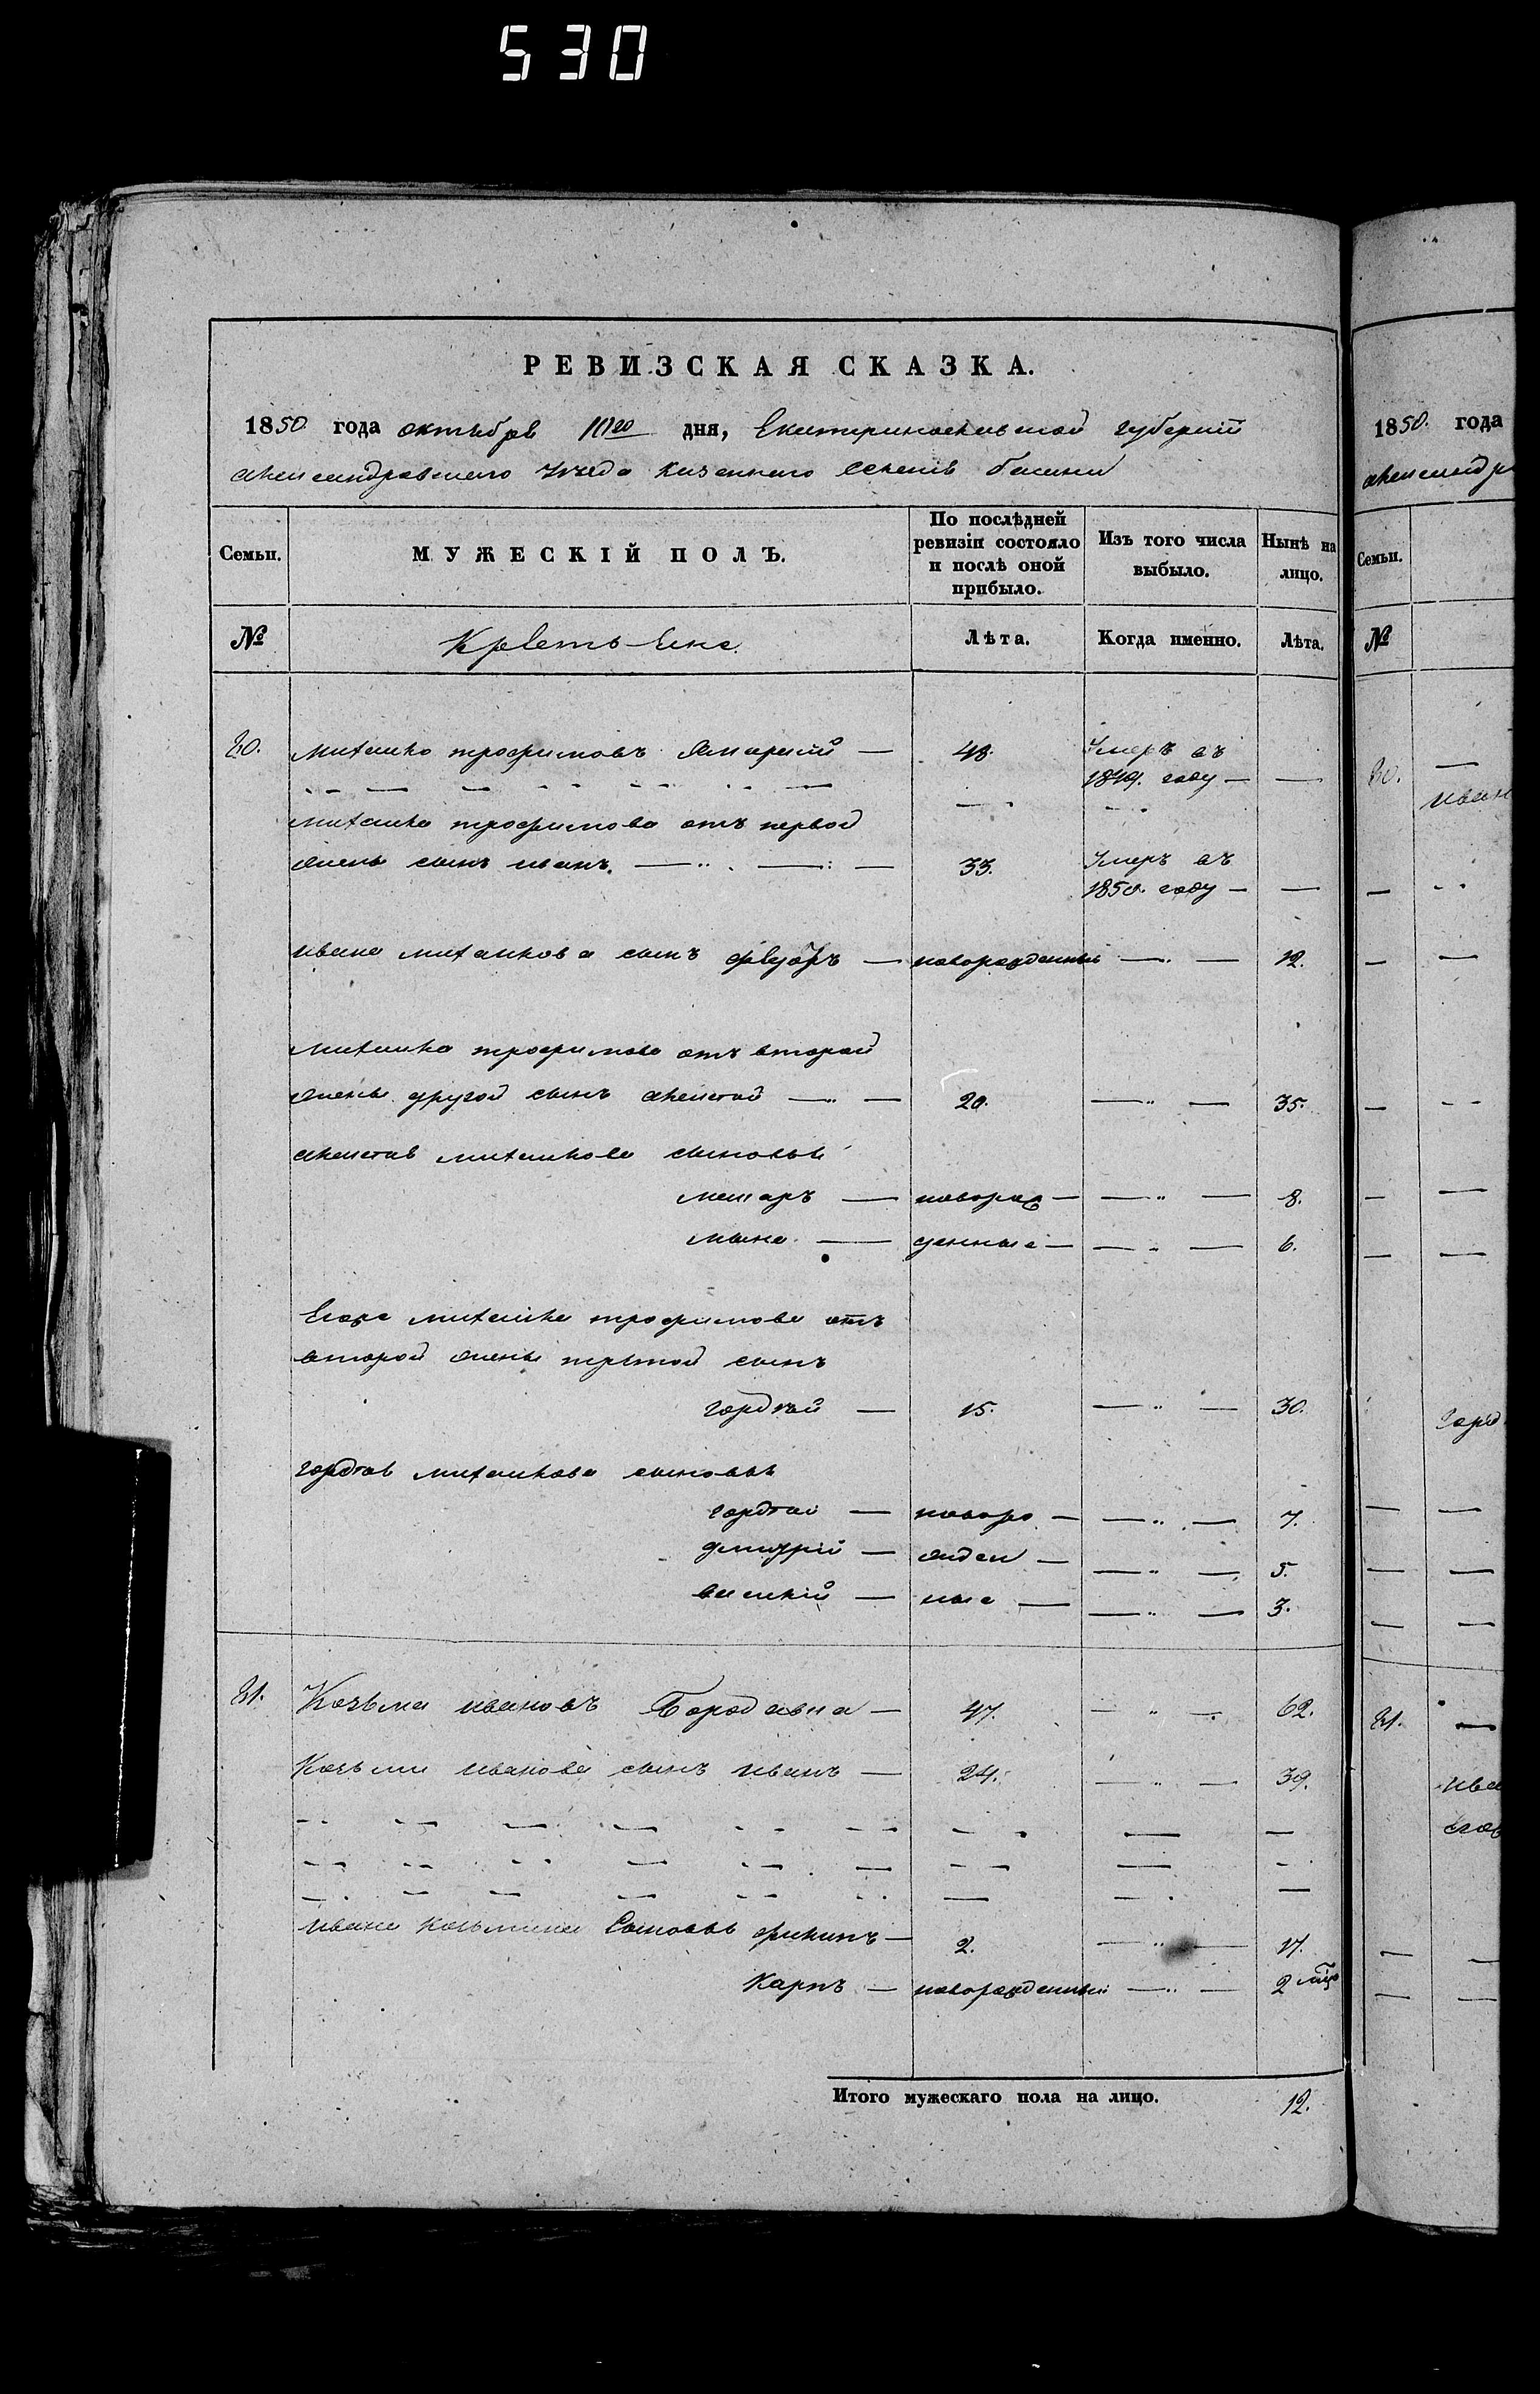 530
РЕВИЗСКАЯ СКАЗКА.
1850 года октября дня, Екатеринославской губернии
александравскаго уезда казеннаго селенія
Семьи. МУЖЕСКІЙ ПОЛЪ. По послѣдней ревизіи состояло и послѣ оной прибыло. Изъ того числа выбыло. Нынѣ на лицо.
№ Лѣта. Когда именно. Лѣта.
михайло трофимовъ — 48. Умеръ въ
1849. году — —
михайла трофимова отъ первой
жены сынъ иванъ. — 33. Умеръ въ
1850. году — —
ивана михайлова сынъ — новорожденный — 12.
михайла трофимова отъ второй
жены другой сынъ алексѣй — 20. — 35.
алексѣя михайлова сыновья
— новорож — — 8.
— денные — — 6.
Его же михайла трофимова отъ
второй жены третій сынъ
гордѣй — 15. — 30.
гордѣя михайлова сыновья
гордѣй — новоро — — 7.
дмитрій — жден — — 5.
василій — ные — — 3.
Козьма ивановъ — 47. — 62.
Козьмы иванова сынъ иванъ — 24. — 39.
ивана козьмина Сыновья филипъ — 2. — 17.
Карпъ — новорожденный — 2
Итого мужескаго пола на лицо. 12.
1850. года
Семьи.
№